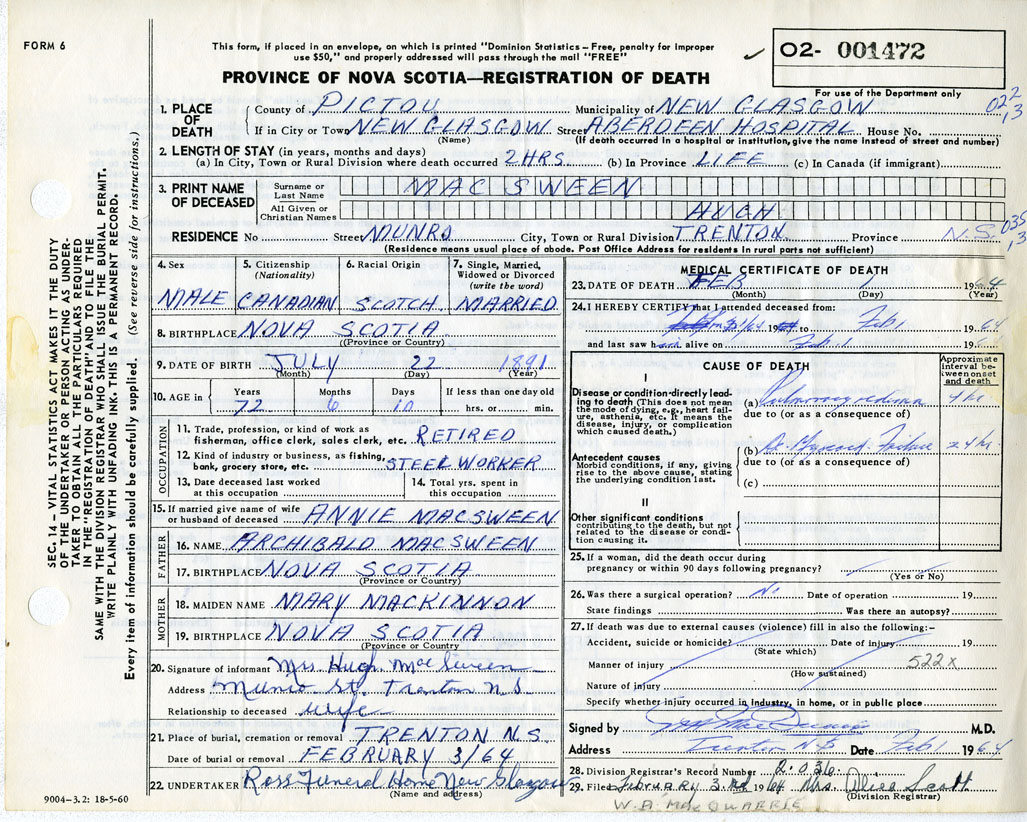 FORM 6
This form, if placed in an envelope, on which is printed "Dominion Statistics – Free, penalty for improper
use $50," and properly addressed will pass through the mail "FREE"
✓ O2- 001472
PROVINCE OF NOVA SCOTIA—REGISTRATION OF DEATH
For use of the Department only
1. PLACE OF DEATH County of PICTOU Municipality of NEW GLASGOW 022,3
If in City or Town NEW GLASGOW Street ABERDEEN HOSPITAL House No.
(Name) (If death occurred in a hospital or institution, give the name instead of street and number)
2. LENGTH OF STAY (in years, months and days)
(a) In City, Town or Rural Division where death occurred 2 HRS (b) In Province LIFE (c) In Canada (if immigrant)
3. PRINT NAME OF DECEASED Surname or Last Name MACSWEEN
All Given or Christian Names HUGH
RESIDENCE No Street MUNRO City, Town or Rural Division TRENTON Province N.S. 035,3
(Residence means usual place of abode. Post Office Address for residents in rural parts not sufficient)
4. Sex MALE
5. Citizenship (Nationality) CANADIAN
6. Racial Origin SCOTCH
7. Single, Married, Widowed or Divorced (write the word) MARRIED
8. BIRTHPLACE NOVA SCOTIA
((Province or Country)
9. DATE OF BIRTH JULY 22 1891
(Month) (Day) (Year)
10. AGE in Years Months Days If less than one day old
72 6 10 hrs. or min.
OCCUPATION
11. Trade, profession, or kind of work as
fisherman, office clerk, sales clerk, etc. RETIRED
12. Kind of industry or business, as fishing,
bank, grocery store, etc. STEEL WORKER
13. Date deceased last worked at this occupation
14. Total yrs. spent in this occupation
15. If married give name of wife
or husband of deceased ANNIE MACSWEEN
FATHER
16. NAME ARCHIBALD MACSWEEN
17. BIRTHPLACE NOVA SCOTIA
(Province or Country)
MOTHER
18. MAIDEN NAME MARY MACKINNON
19. BIRTHPLACE NOVA SCOTIA
(Province or Country)
20. Signature of informant Mrs Hugh MacSween
Address Munro St. Trenton N.S
Relationship to deceased wife
21. Place of burial, cremation or removal TRENTON N.S.
Date of burial or removal FEBRUARY 3/64
22. UNDERTAKER Ross Funeral Home New Glasgow
(Name and address)
9004–3.2: 18-5-60
MEDICAL CERTIFICATE OF DEATH
23. DATE OF DEATH FEB 1 1964
(Month) (Day) (Year)
24. I HEREBY CERTIFY that I attended deceased from:
1/64 19 to Feb 1 1964
and last saw him alive on Feb. 1 196
CAUSE OF DEATH
Approximate interval between onset and death
I
Disease or condition directly leading to death (This does not mean the mode of dying, e.g., heart failure, asthenia, etc. It means the disease, injury, or complication which caused death.)
(a) Pulmonary edema 4 hr
due to (or as a consequence of)
Antecedent causes
Morbid conditions, if any, giving rise to the above cause, stating the underlying condition last.
(b) Myocard Failure 24 hr
due to (or as a consequence of)
(c)
II
Other significant conditions
contributing to the death, but not related to the disease or condition causing it.
25. If a woman, did the death occur during
pregnancy or within 90 days following pregnancy?
(Yes or No)
26. Was there a surgical operation? No Date of operation 19
State findings Was there an autopsy?
27. If death was due to external causes (violence) fill in also the following:-
Accident, suicide or homicide? Date of injury 19
(State which)
Manner of injury 522X
(How sustained)
Nature of injury
Specify whether injury occurred in industry, in home, or in public place
Signed by M.D.
Address Trenton N.S Date Feb 1 1964
28. Division Registrar's Record Number 2036
29. Filed February 3rd 1964 Mrs. Alice Scott
(Division Registrar)
W. A. MacQUARRIE
SEC. 14 – VITAL STATISTICS ACT MAKES IT THE DUTY
OF THE UNDERTAKER OR PERSON ACTING AS UNDER-
TAKER TO OBTAIN ALL THE PARTICULARS REQUIRED
IN THE "REGISTRATION OF DEATH" AND TO FILE THE
SAME WITH THE DIVISION REGISTRAR WHO SHALL ISSUE THE BURIAL PERMIT.
WRITE PLAINLY WITH UNFADING INK. THIS IS A PERMANENT RECORD.
Every item of information should be carefully supplied. (See reverse side for instructions.)